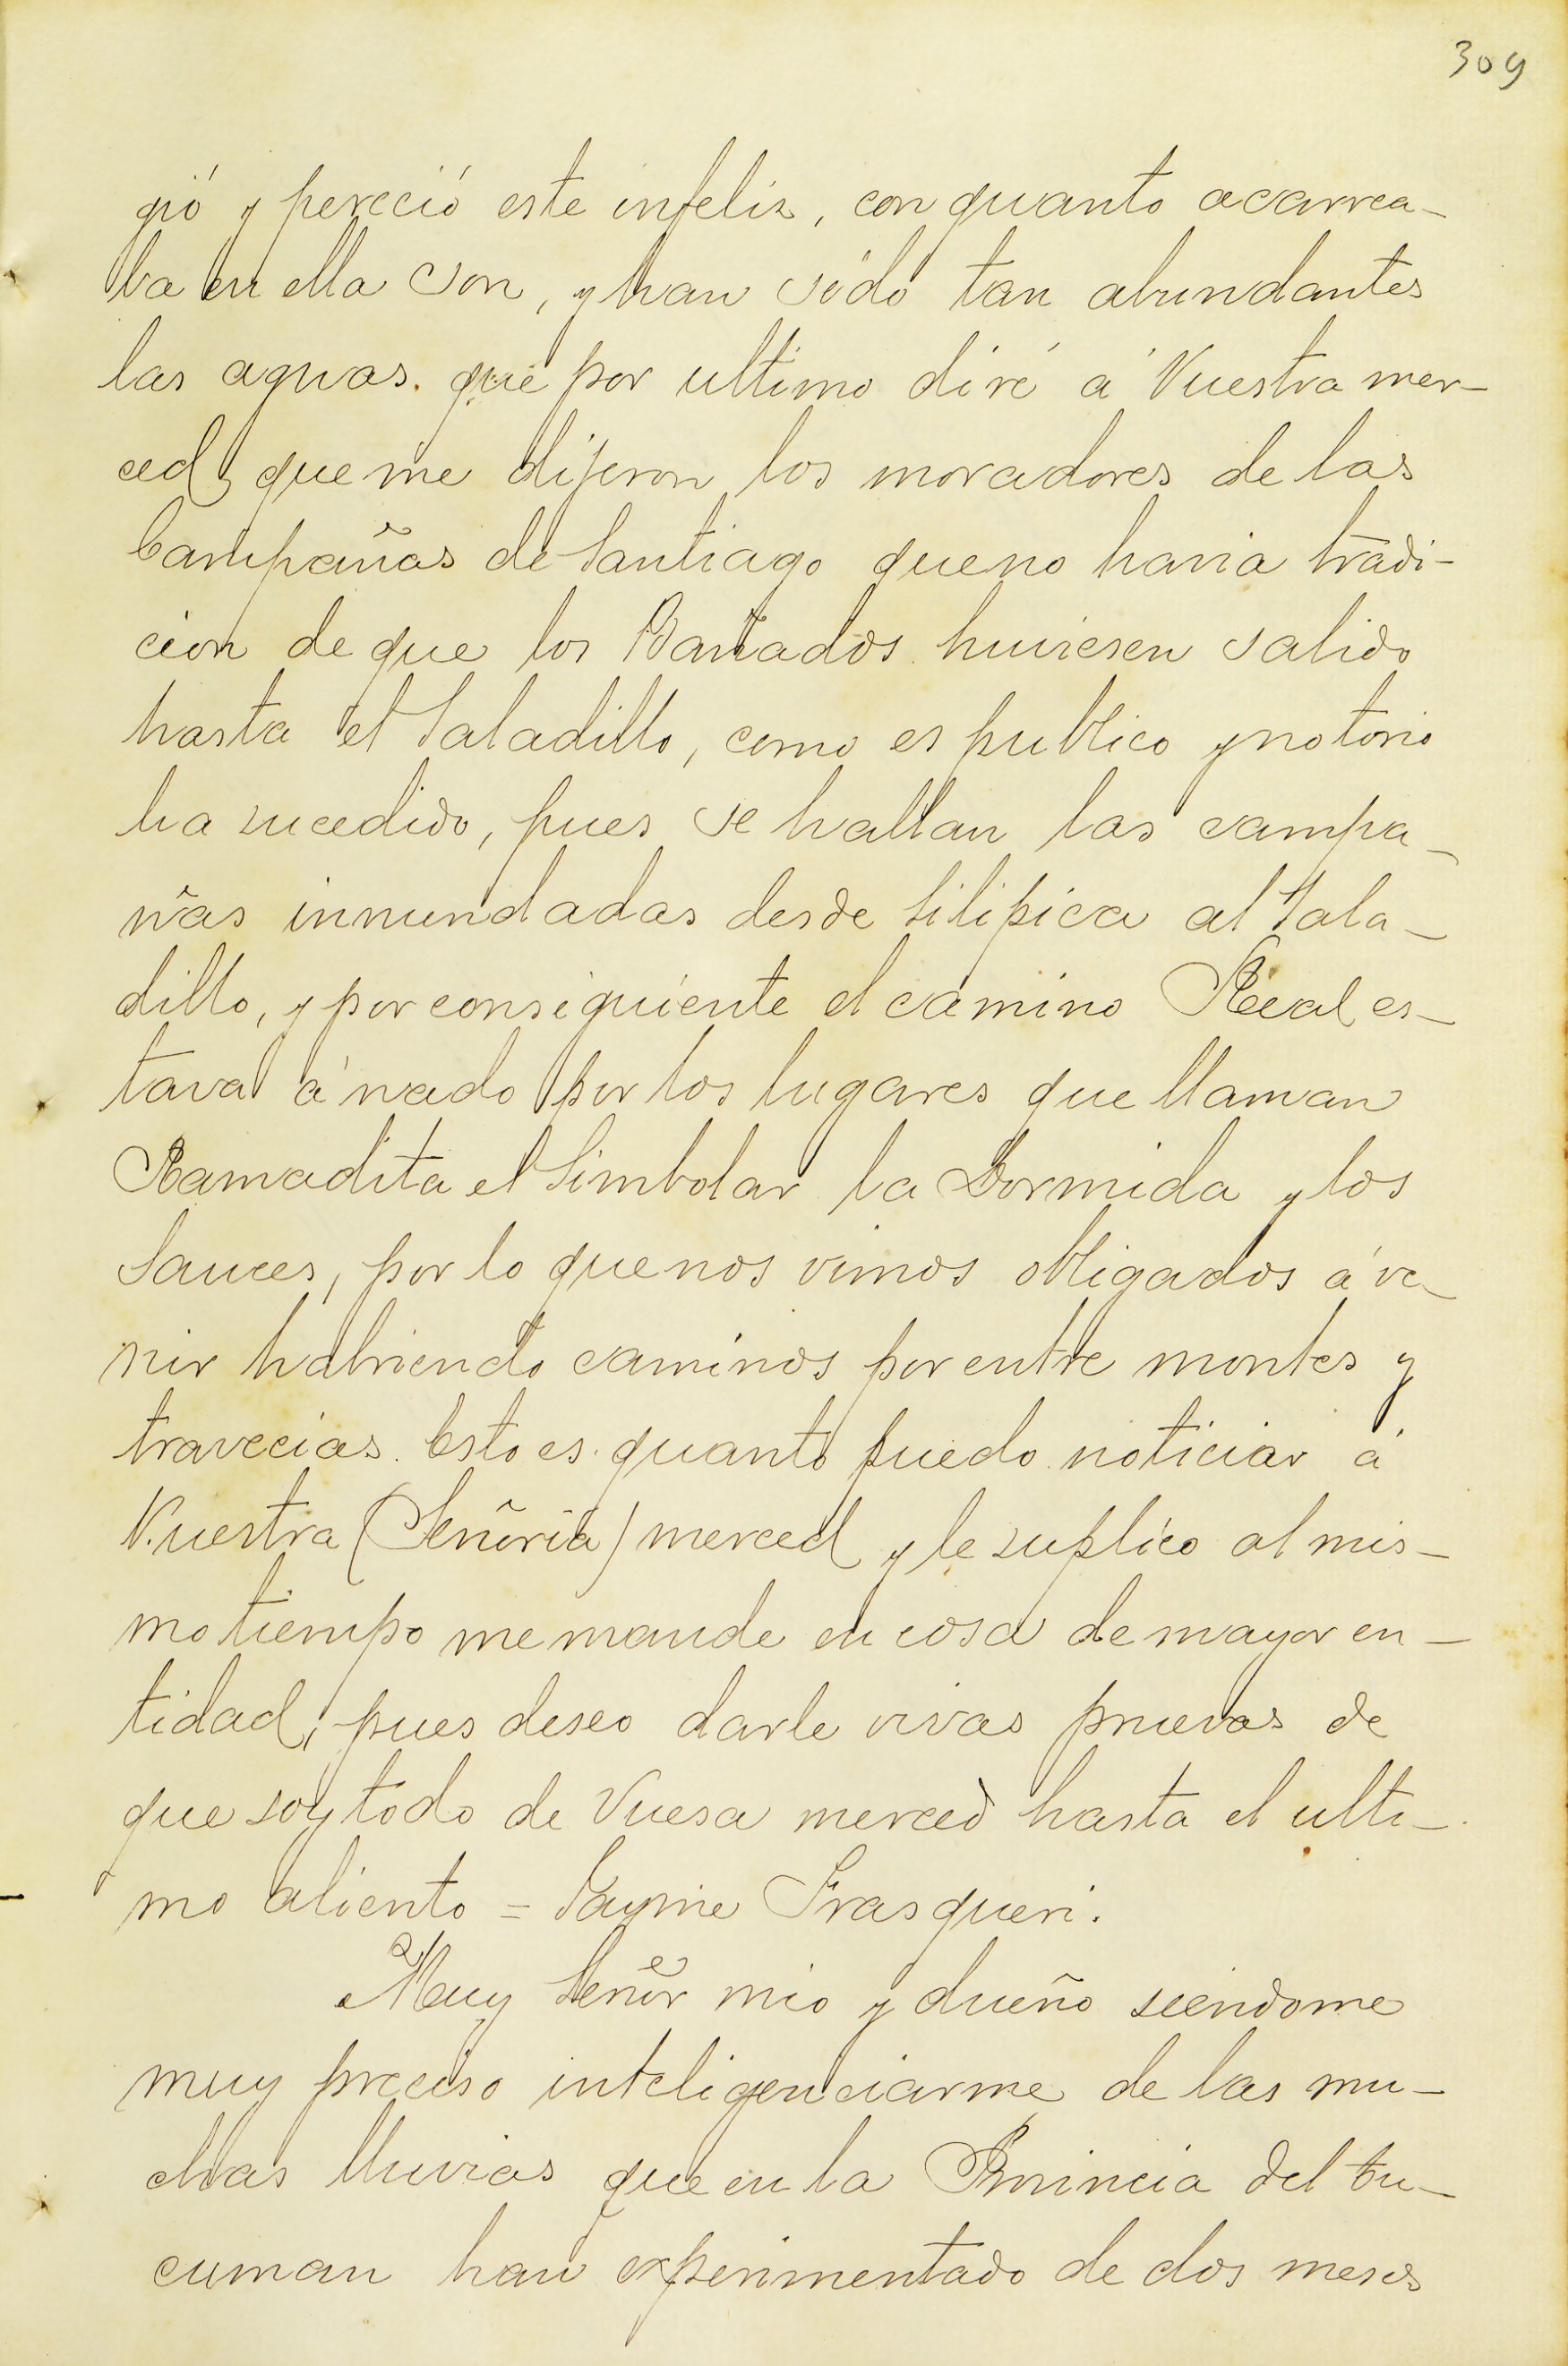 309
gió y pereció este infeliz, con quanto acarrea-
ba en ella son, y han sido tan abundantes
las aguas. que por ultimo diré á Vuestra mer-
ced, que me dijeron los moradores de las
Campañas de Santiago que no havia tradi-
cion de que los Bañados huviesen salido
hasta el Saladillo, como es publico y notorio
ha sucedido, pues se hallan las campa-
ñas innundadas desde Silipica al Sala-
dillo, y por consiguiente el camino Real es-
tava á nado por los lugares que llaman
Ramadita el Simbolar la Dormida y los
Sauces, por lo que nos vimos obligados á ve-
nir habriendo caminos por entre montes y
travecias. Esto es quanto puedo noticiar á
Vuestra (Señoria) merced y le suplico al mis-
mo tiempo me mande en cosa de mayor en-
tidad, pues deseo darle vivas pruevas de
que soy todo de Vuesa merced hasta el ulti-
mo aliento = Jayme Frasqueri.
Muy Señor mio y dueño siendome
muy preciso inteligenciarme de las mu-
chas lluvias que en la Provincia del Tu-
cuman han experimentado de dos meses